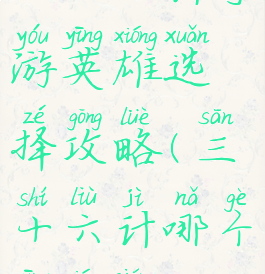 yóu yīng xióng xuǎn
游英雄选
zé gōng lüè sān
择攻略(三
shí liù jì nǎ gè
十六计哪个